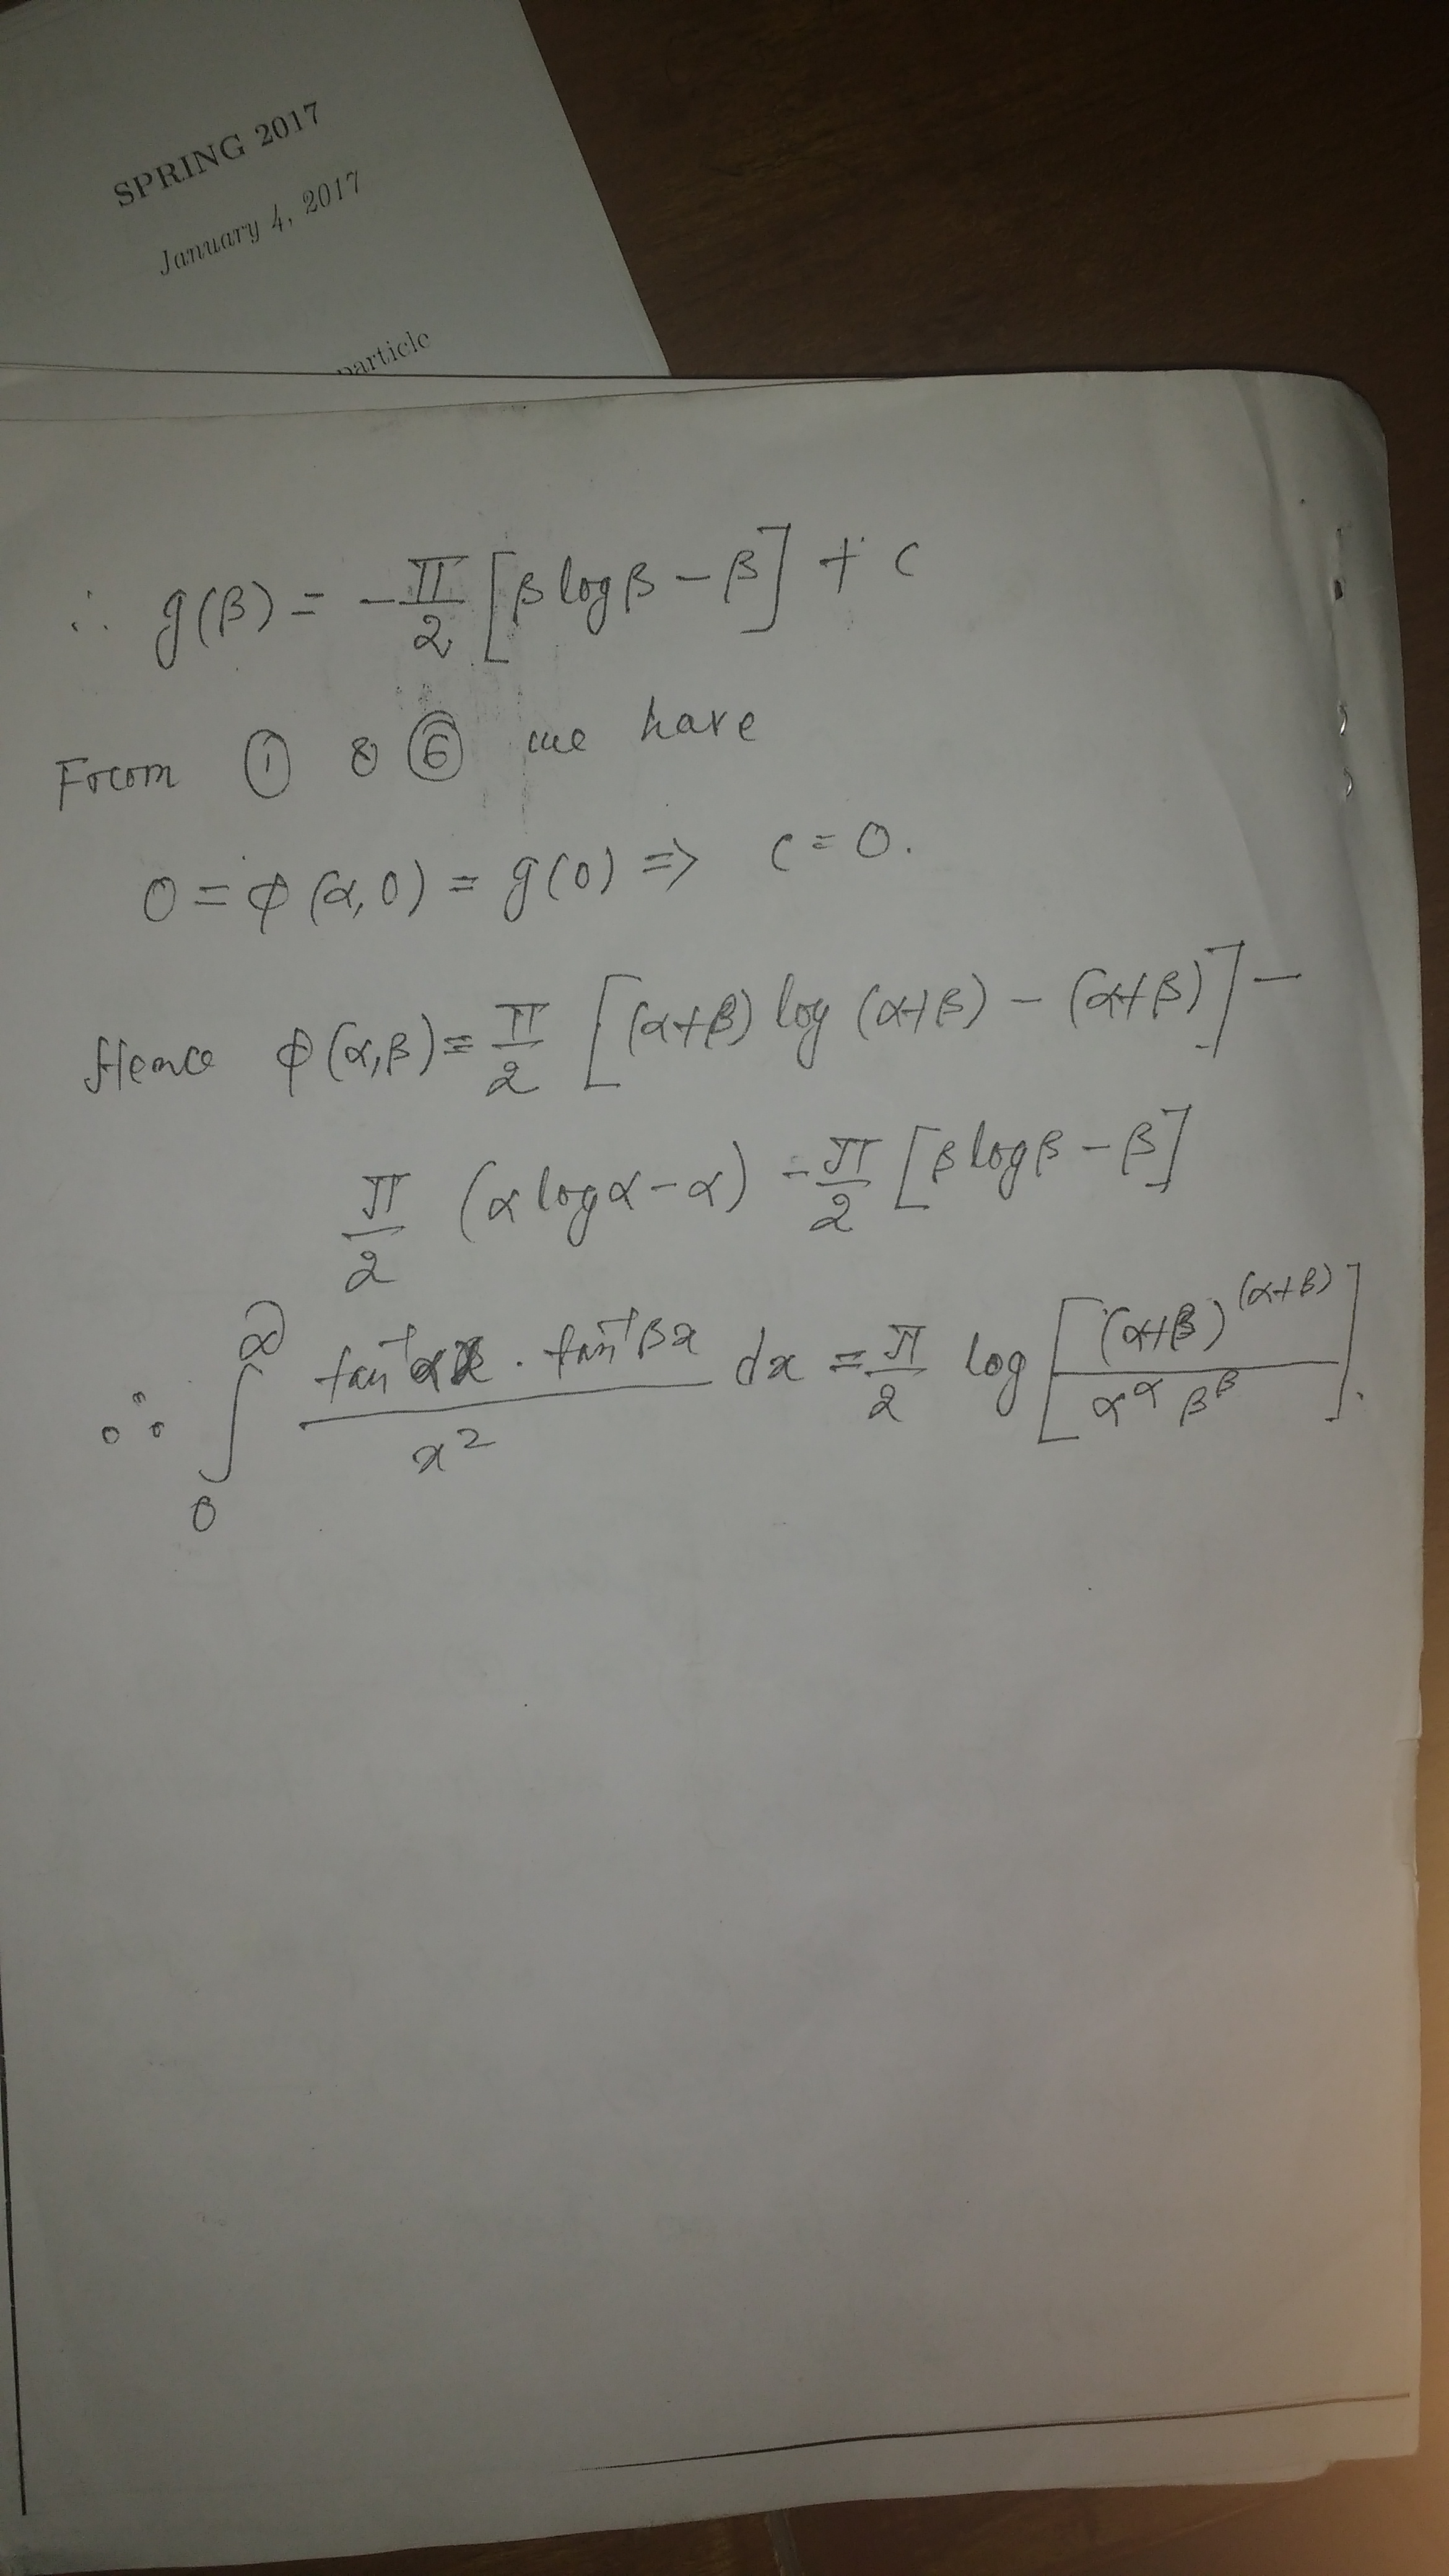 SPRING 2017
January 4, 2017
particle
∴ g(β) = -π/2 [β log β - β] + c
From ① & ⑥ we have
0 = φ(α, 0) = g(0) ⇒ c = 0.
Hence φ(α,β) = π/2 [(α+β) log (α+β) - (α+β)] -
π/2 (α log α - α) - π/2 [β log β - β]
∴ ∫₀^∞ (tan⁻¹αx · tan⁻¹βx)/x² dx = π/2 log [(α+β)^(α+β) / α^α β^β].